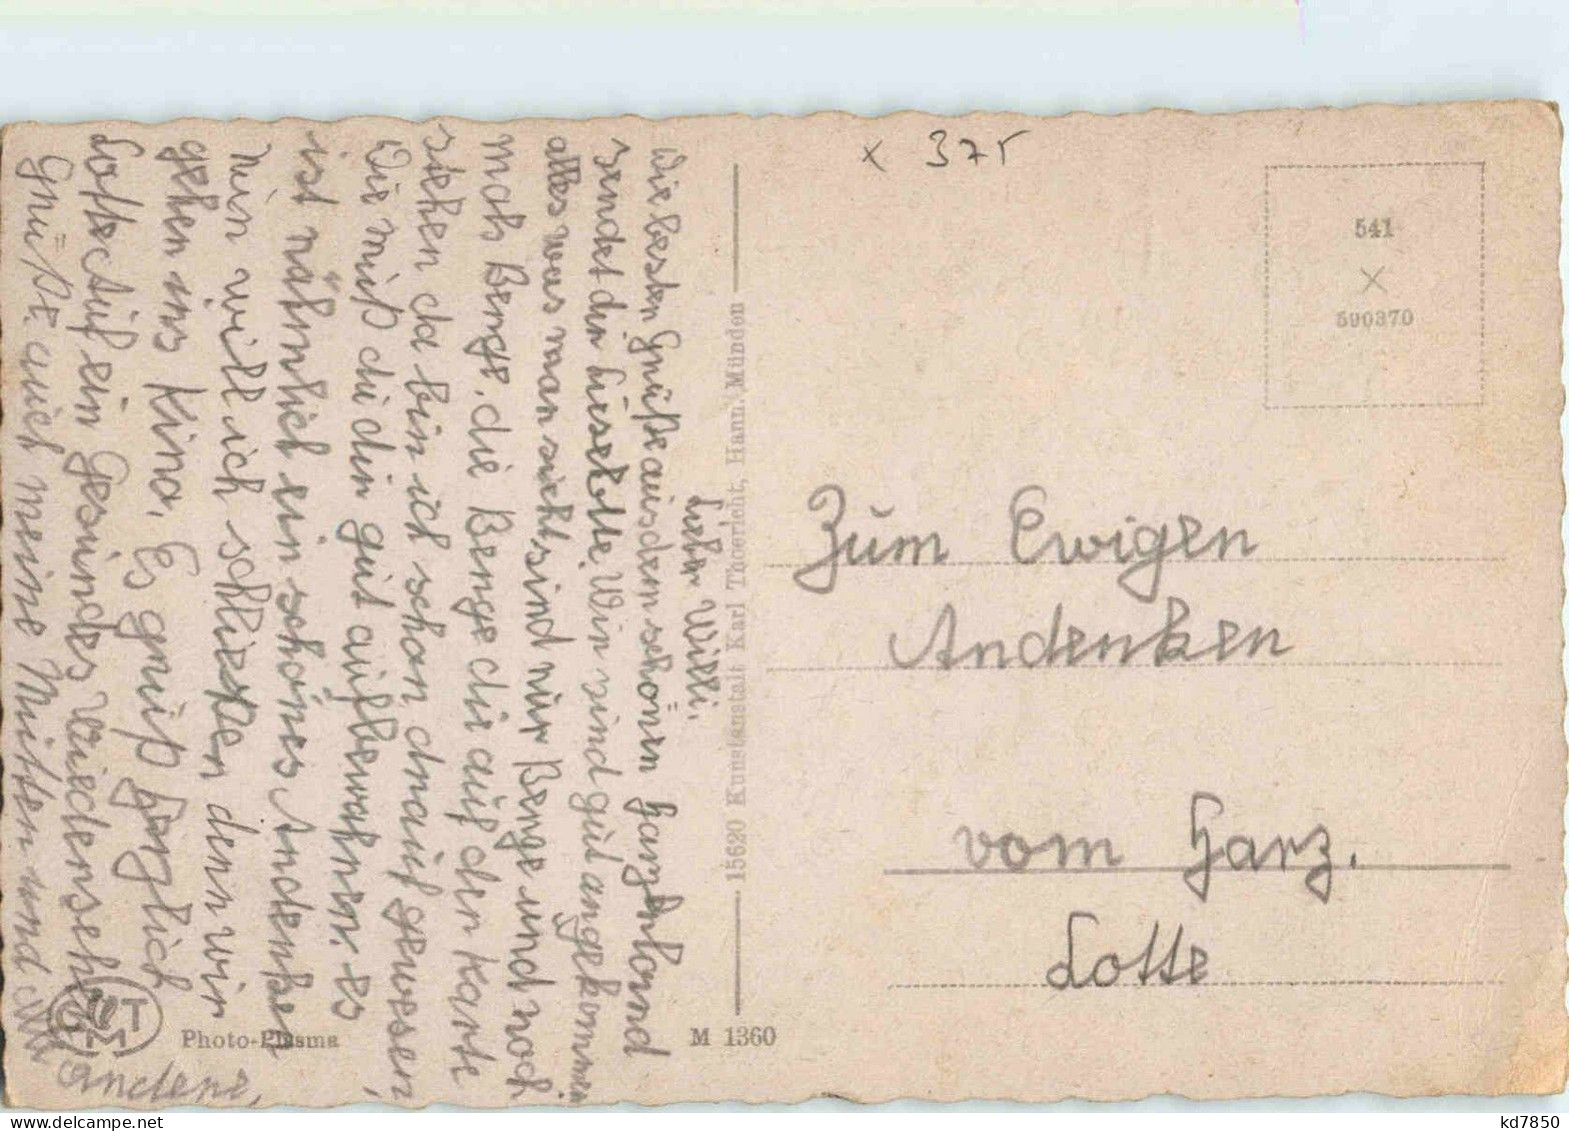 Lieber Willi.
Die besten Grüße aus dem schönen Harzerland
sendet dir Lieselotte. Wir sind gut angekommen
alles was man sieht, sind nur Berge und noch
mals Berge. die Berge die auf der Karte
stehen da bin ich schon drauf gewesen,
Die mußt du dir gut aufbewahren. es
ist nähmlich ein schönes Andenken
Nun will ich schließen denn wir
gehen ins Kino. Es grüß herzlich
Lotte Auf ein Gesundes Wiedersehen
Grüße auch meine Mutter und
Anderen.
x 375
541
X
590370
Zum Ewigen
Andenken
vom Harz.
Lotte
15620 Kunstanstalt Karl Thoericht, Hann. Münden
Photo-Plasma
M 1360
kd7850